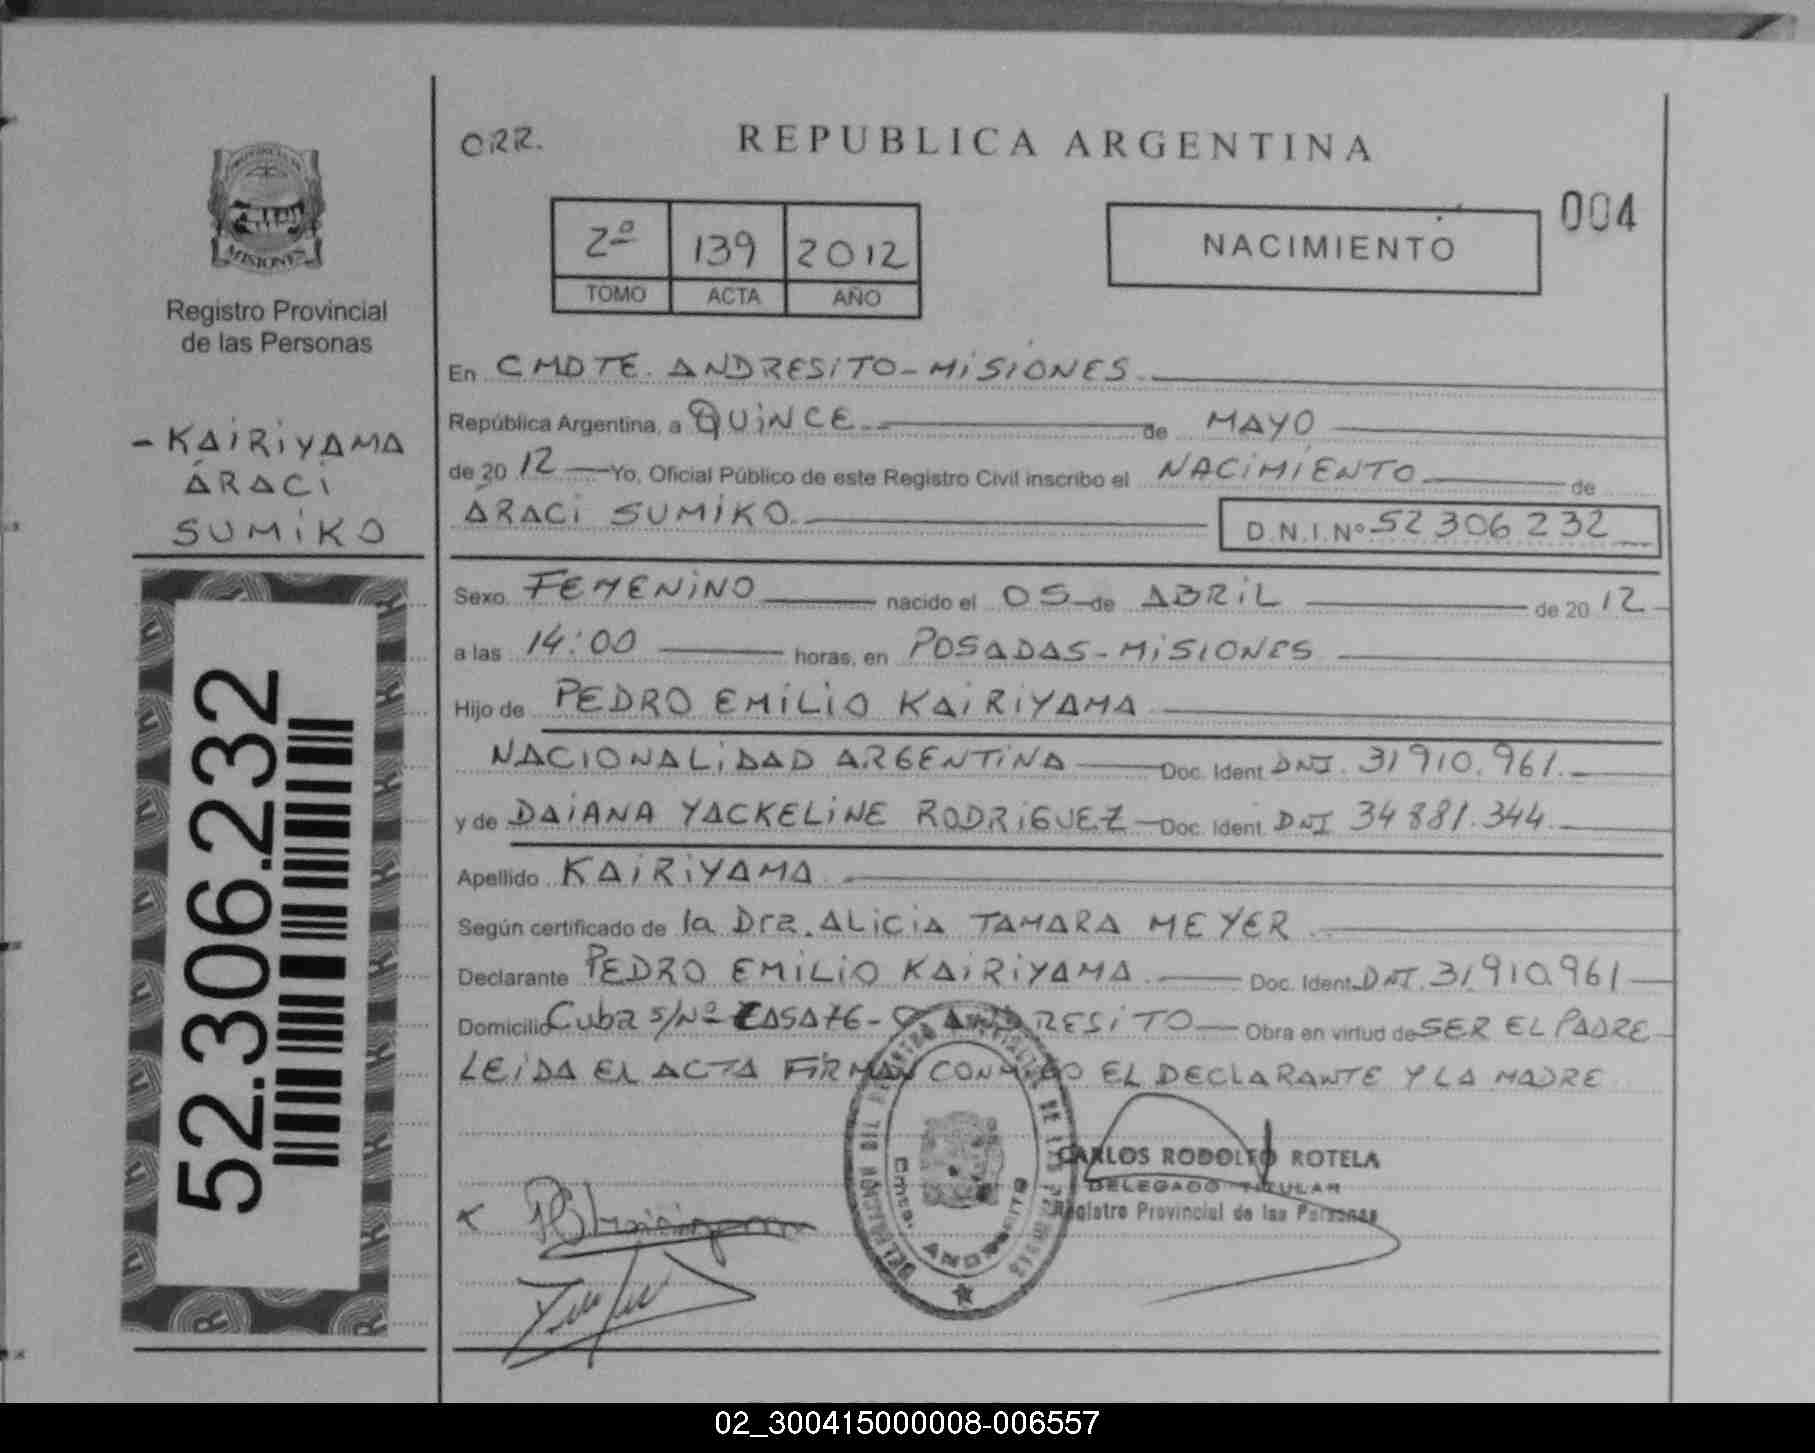 ORR.
REPUBLICA ARGENTINA
004
2º 139 2012
TOMO ACTA AÑO
NACIMIENTO
MISIONES
Registro Provincial
de las Personas
- KAIRIYAMA
ÁRACI
SUMIKO
En CMDTE. ANDRESITO - MISIONES
República Argentina, a QUINCE de MAYO
de 20 12 Yo, Oficial Público de este Registro Civil inscribo el NACIMIENTO de
ÁRACI SUMIKO D.N.I.Nº 52306232
Sexo FEMENINO nacido el 05 de ABRIL de 20 12
a las 14:00 horas, en POSADAS - MISIONES
Hijo de PEDRO EMILIO KAIRIYAMA
NACIONALIDAD ARGENTINA Doc. Ident. DNI. 31910.961.
y de DAIANA YACKELINE RODRIGUEZ Doc. Ident. DNI 34881.344.
Apellido KAIRIYAMA
Según certificado de la Dra. ALICIA TAMARA MEYER
Declarante PEDRO EMILIO KAIRIYAMA. Doc. Ident. DNI. 31.910.961
Domicilio Cuba s/Nº CASA 76 - ANDRESITO Obra en virtud de SER EL PADRE
LEIDA EL ACTA FIRMAN CONMIGO EL DECLARANTE Y LA MADRE
52.306.232
CARLOS RODOLFO ROTELA
DELEGADO TITULAR
Registro Provincial de las Personas
Cmte. ANDRESITO
02_300415000008-006557